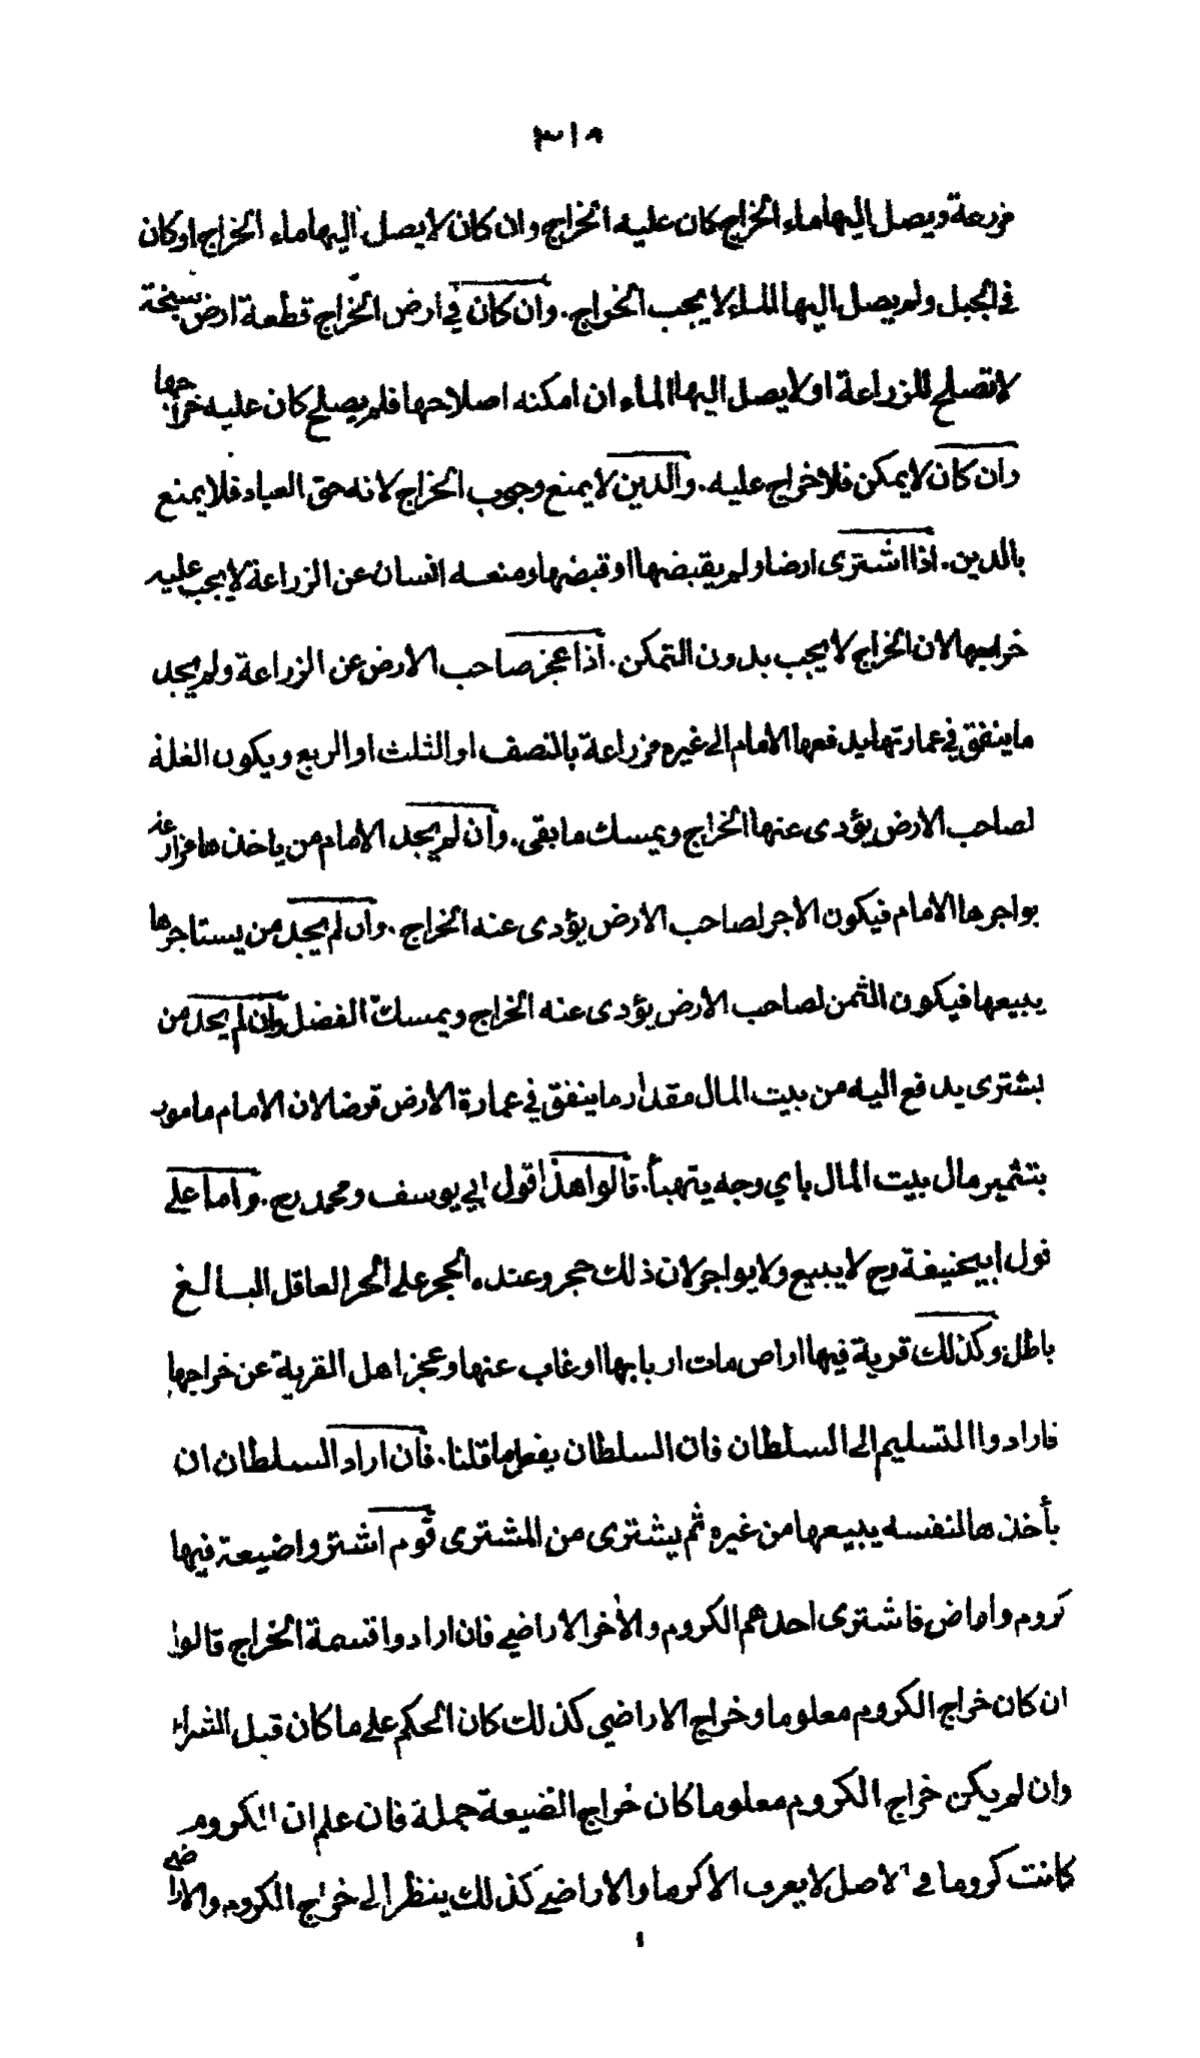 ٣١٨
مزرعة ويصل اليها ماء الخراج كان عليه الخراج وان كان لا يصل اليها ماء الخراج او كان
في الجبل ولم يصل اليها الماء لا يجب الخراج. وان كان في ارض الخراج قطعة ارض سبخة
لا تصلح للزراعة او لا يصل اليها الماء ان امكنه اصلاحها فلم يصلح كان عليه خراجها
وان كان لا يمكن فلا خراج عليه. والدين لا يمنع وجوب الخراج لانه حق العباد فلا يمنع
بالدين. اذا اشترى ارضا ولم يقبضها او قبضها ومنعه انسان عن الزراعة لا يجب عليه
خراجها لان الخراج لا يجب بدون التمكن. اذا عجز صاحب الارض عن الزراعة ولم يجد
ما ينفق في عمارتها يدفعها الامام الى غيره مزراعة بالنصف او الثلث او الربع ويكون الغلة
لصاحب الارض يؤدى عنها الخراج ويمسك ما بقى. وان لم يجد الامام من ياخذها مزارعة
يواجرها الامام فيكون الاجر لصاحب الارض يؤدى عنه الخراج. وان لم يجد من يستاجرها
يبيعها فيكون الثمن لصاحب الارض يؤدى عنه الخراج ويمسك الفضل وان لم يجد من
يشترى يدفع اليه من بيت المال مقدار ما ينفق في عمارة الارض قرضا لان الامام مامور
بتثمير مال بيت المال باي وجه يتهيأ. قالوا هذا قول ابي يوسف ومحمد رح. واما على
قول ابيحنيفة رح لا يبيع ولا يواجر لان ذلك حجر وعنده الحجر على الحر العاقل البالغ
باطل وكذلك قرية فيها اراض مات اربابها او غاب عنها وعجز اهل القرية عن خراجها
فارادوا التسليم الى السلطان فان السلطان يفعل ما قلنا. فان اراد السلطان ان
يأخذها لنفسه يبيعها من غيره ثم يشترى من المشترى قوم اشتروا ضيعة فيها
كروم واراض فاشترى احدهم الكروم والأخر الاراضي فان ارادوا قسمة الخراج قالوا
ان كان خراج الكروم معلوما وخراج الاراضي كذلك كان الحكم على ما كان قبل الشراء
وان لم يكن خراج الكروم معلوما كان خراج الضيعة جملة فان علم ان الكروم
كانت كروما في الاصل لا يعرف الا كرما والاراضي كذلك ينظر الى خراج الكروم والاراضي